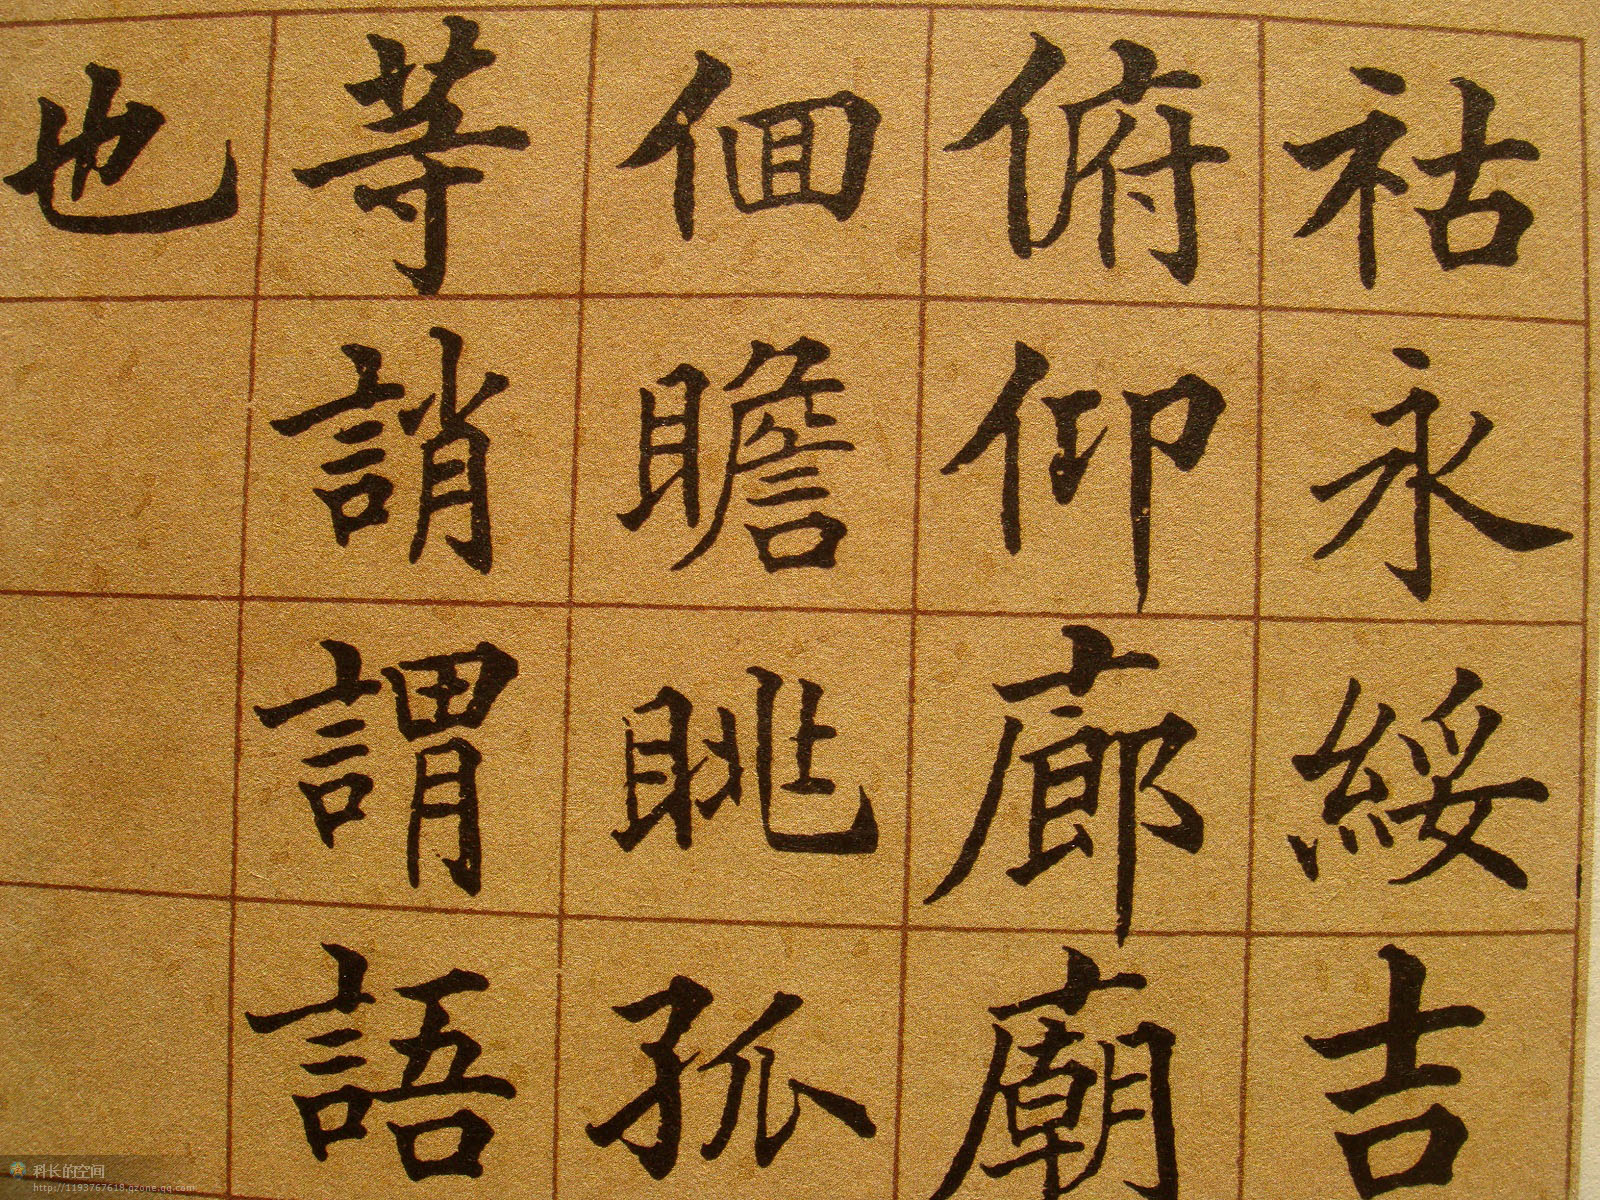 祜永綏吉
俯仰廊廟
佪瞻眺孤
等誚謂語
也
科长的空间
http://1193767618.qzone.qq.com